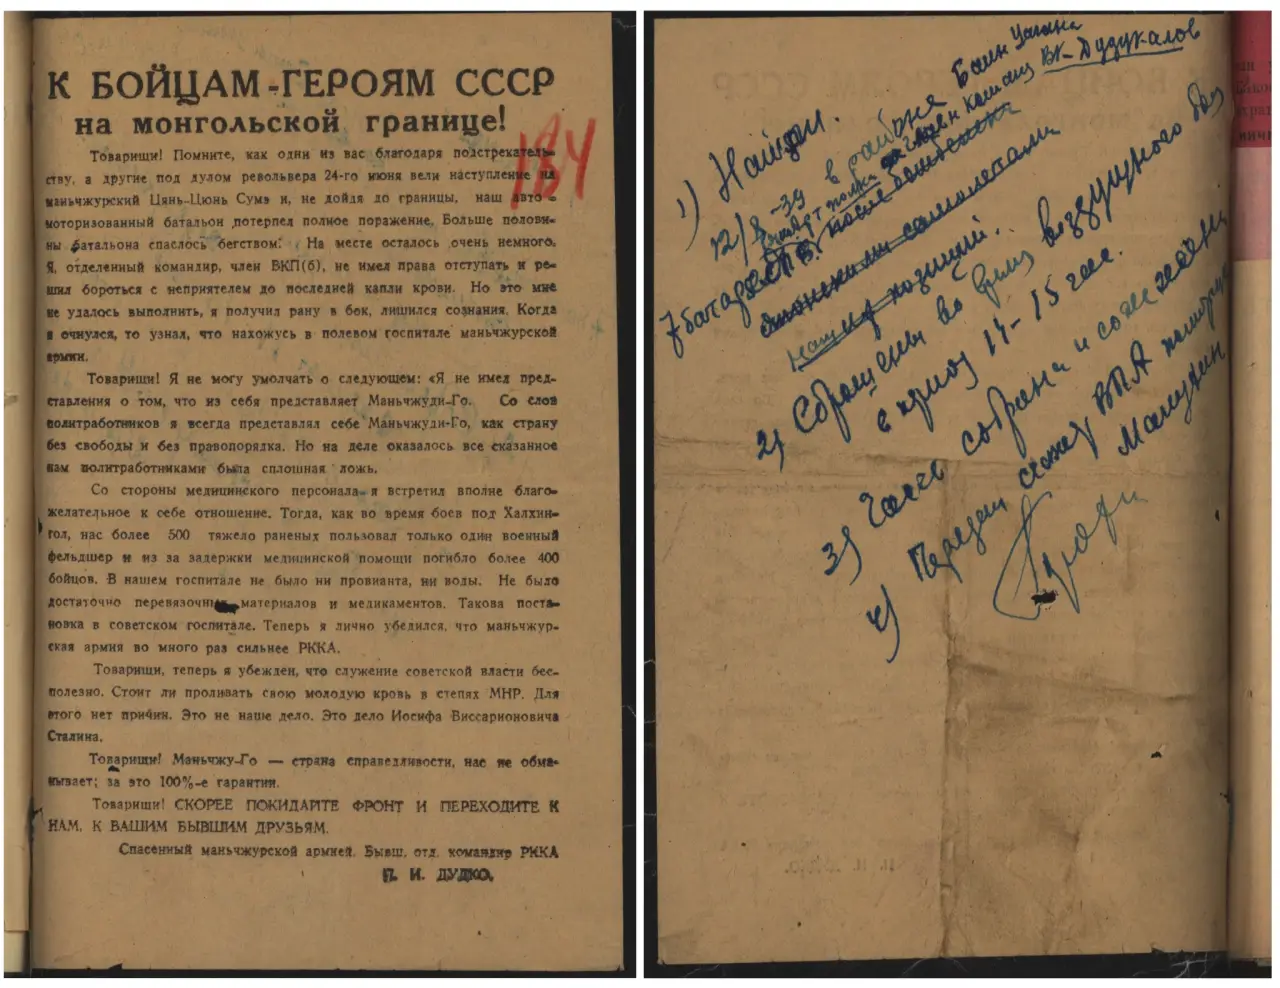 К БОЙЦАМ-ГЕРОЯМ СССР
на монгольской границе!
184
Товарищи! Помните, как одни из вас благодаря подстрекатель-
ству, а другие под дулом револьвера 24-го июня вели наступление на
маньчжурский Цянь-Цюнь Сумэ и, не дойдя до границы, наш авто-
моторизованный батальон потерпел полное поражение. Больше полови-
ны батальона спаслось бегством. На месте осталось очень немного.
Я, отделенный командир, член ВКП(б), не имел права отступать и ре-
шил бороться с неприятелем до последней капли крови. Но это мне
не удалось выполнить, я получил рану в бок, лишился сознания. Когда
я очнулся, то узнал, что нахожусь в полевом госпитале маньчжурской
армии.
Товарищи! Я не могу умолчать о следующем: «Я не имел пред-
ставления о том, что из себя представляет Маньчжуди-Го. Со слов
политработников я всегда представлял себе Маньчжуди-Го, как страну
без свободы и без правопорядка. Но на деле оказалось все сказанное
нам политработниками была сплошная ложь.
Со стороны медицинского персонала я встретил вполне благо-
желательное к себе отношение. Тогда, как во время боев под Халхин-
гол, нас более 500 тяжело раненых пользовал только один военный
фельдшер и из за задержки медицинской помощи погибло более 400
бойцов. В нашем госпитале не было ни провианта, ни воды. Не было
достаточно перевязочных материалов и медикаментов. Такова поста-
новка в советском госпитале. Теперь я лично убедился, что маньчжур-
ская армия во много раз сильнее РККА.
Товарищи, теперь я убежден, что служение советской власти бес-
полезно. Стоит ли проливать свою молодую кровь в степях МНР. Для
этого нет причин. Это не наше дело. Это дело Иосифа Виссарионовича
Сталина.
Товарищи! Маньчжу-Го — страна справедливости, нас не обма-
нывает; за это 100%-е гарантии.
Товарищи! СКОРЕЕ ПОКИДАЙТЕ ФРОНТ И ПЕРЕХОДИТЕ К
НАМ, К ВАШИМ БЫВШИМ ДРУЗЬЯМ.
Спасенный маньчжурской армией. Бывш. отд. командир РККА
П. И. ДУДКО.
1) Найден.
12/8-39 в районе Баин Цагана
7 батареей после бомбежки
японскими самолетами
наших позиций.
ВК-Дудукалов
2) Сброшены во время воздушного боя
в период 14-15 час.
3) Часть собрана и сожжены
4) Передан